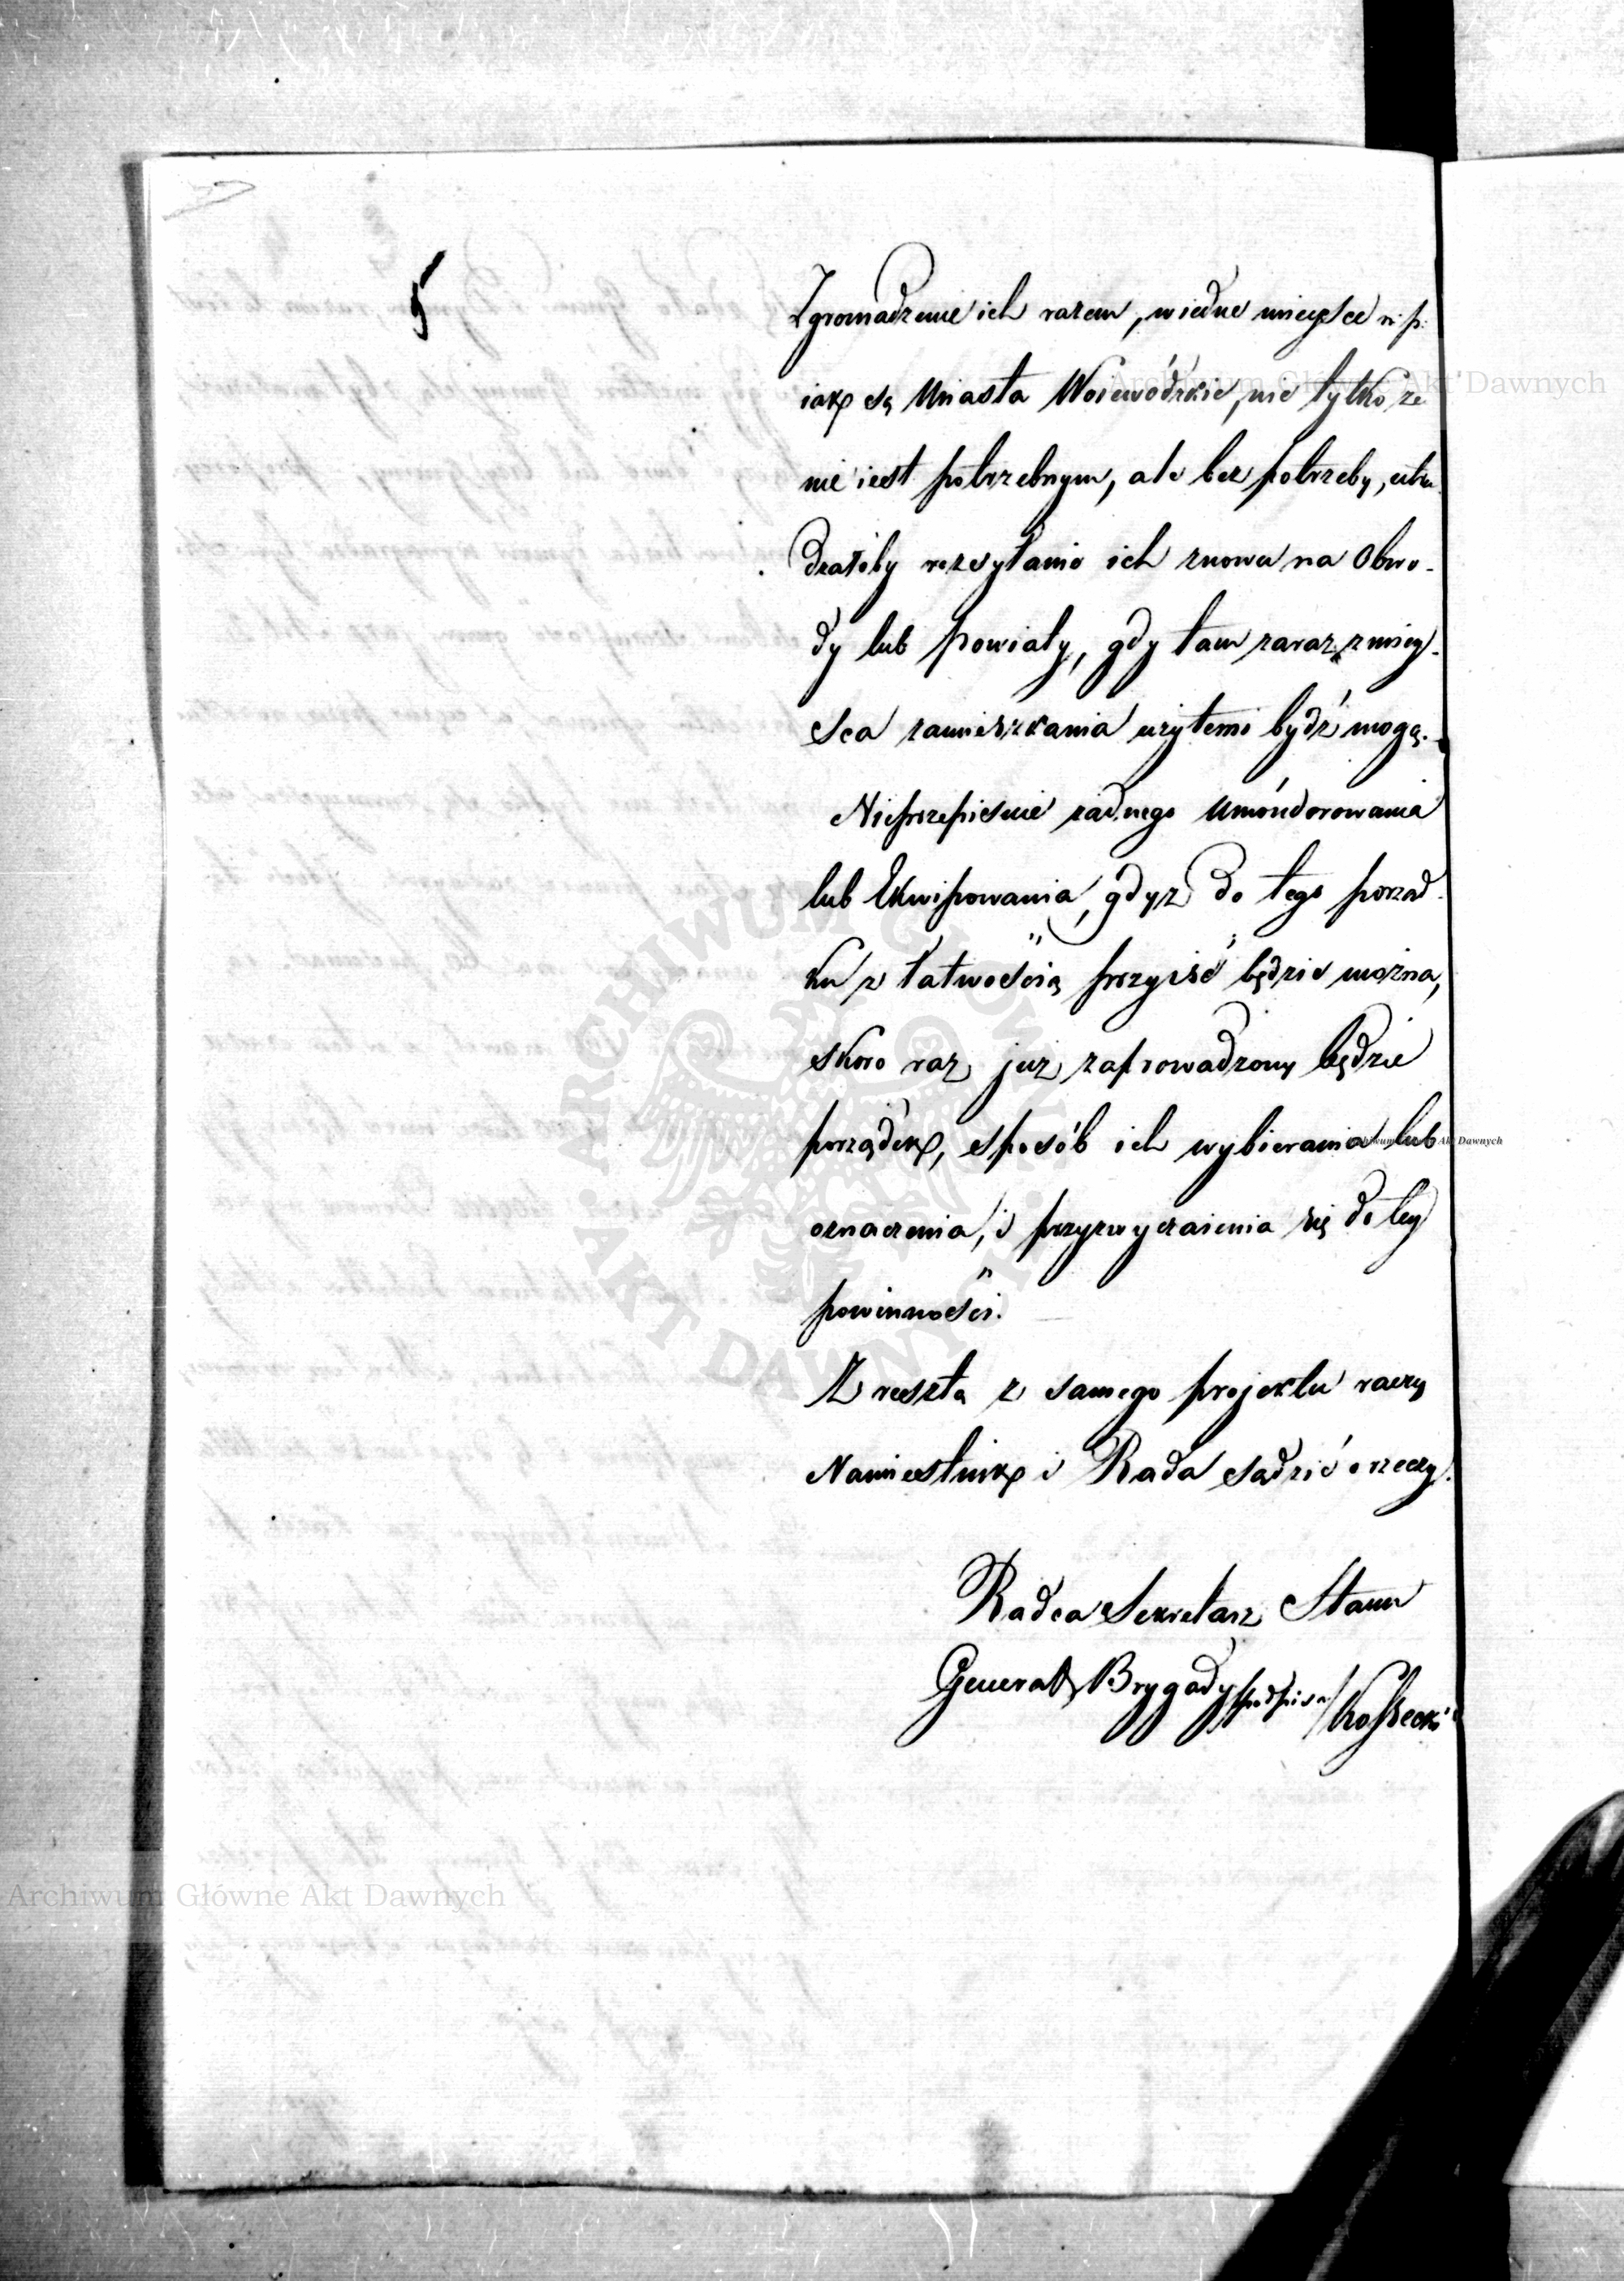 5
Zgromadzenie ich razem, w iedne mieysce n: p:
iak są Miasta Woiewódzkie, nie tylko że
nie iest potrzebnym, ale bez potrzeby, utru
dzałoby rozsyłanie ich znowu na Obwo-
dy lub Powiaty, gdy tam zaraz z miey-
sca zamieszkania użytemi bydź mogą.
Nieprzepisuie żadnego Umóndorowania
lub Ekwipowania, gdyż do tego porząd-
ku z łatwością przyiść będzie można,
skoro raz już zaprowadzony będzie
porządek, sposób ich wybierania lub
oznaczenia, i przyzwyczaienia się do tey
powinności.
Z resztą z samego projektu raczy
Namiestnik i Rada sądzić o rzeczy.
Radca Sekretarz Stanu
Generał Brygady /podpisa/ Kossecki
Archiwum Główne Akt Dawnych
Archiwum Główne Akt Dawnych
ARCHIWUM GŁÓWNE · AKT DAWNYCH ·
Archiwum Główne Akt Dawnych